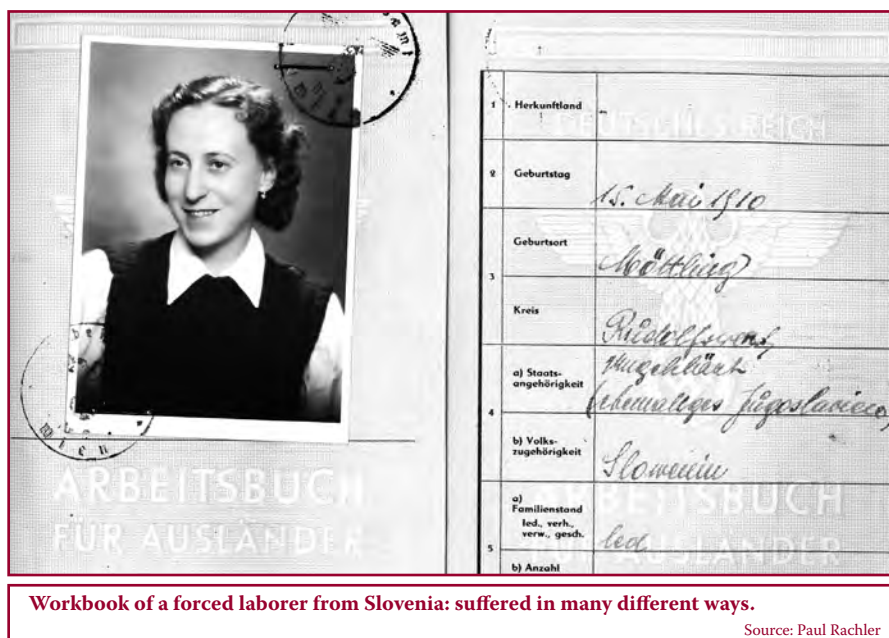 Wien
ARBEITSBUCH
FÜR AUSLÄNDER
1 Herkunftland
DEUTSCHES REICH
2 Geburtstag
15. Mai 1910
Geburtsort
Möttling
3
Kreis
Rudolfswert
a) Staats-
angehörigkeit
Ungeklärt
(ehemaliges Jugoslavien)
4
b) Volks-
zugehörigkeit
Slowenin
a)
Familienstand
led., verh.,
verw., gesch.
led
5
b) Anzahl
ARBEITSBUCH
FÜR AUSLÄNDER
Workbook of a forced laborer from Slovenia: suffered in many different ways.
Source: Paul Rachler